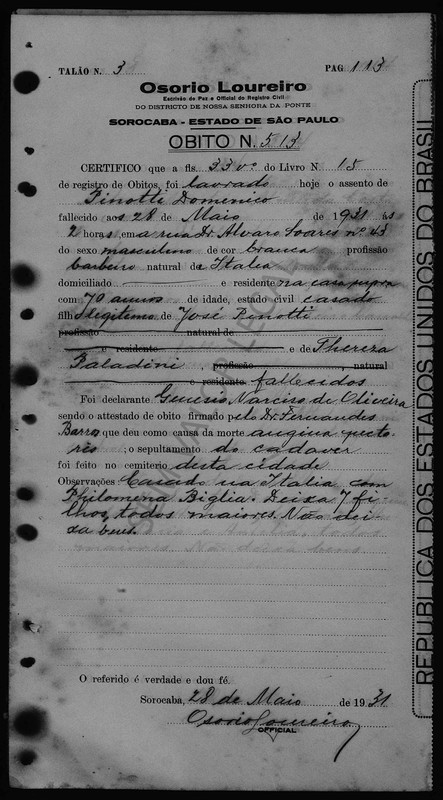 TALÃO N. 3 PAG 113
Osorio Loureiro
Escrivão de Paz e Official do Registro Civil
DO DISTRICTO DE NOSSA SENHORA DA PONTE
SOROCABA - ESTADO DE SÃO PAULO
OBITO N. 513
CERTIFICO que a fls. 33 vº do Livro N. 15
de registro de Obitos, foi lavrado hoje o assento de
Pinotti Domenico
fallecido aos 28 de Maio de 1931 ás
2 horas, em a rua Dr. Alvaro Soares nº 43
do sexo masculino de cor branca profissão
barbeiro natural da Italia
domiciliado e residente na casa supra
com 70 annos de idade, estado civil casado
filho legitimo de José Pinotti
profissão natural de
e residente e de Thereza
Paladini, profissão, natural
e residente fallecidos
Foi declarante Genesio Narciso de Oliveira
sendo o attestado de obito firmado pelo Dr. Fernandes
Barros que deu como causa da morte angina pecto-
ris; o sepultamento do cadaver
foi feito no cemiterio desta cidade
Observações Casado na Italia com
Philomena Biglia. Deixa 7 fi-
lhos, todos maiores. Não dei-
xa bens.
O referido é verdade e dou fé.
Sorocaba, 28 de Maio de 1931
Osorio Loureiro
OFFICIAL
REPUBLICA DOS ESTADOS UNIDOS DO BRASIL